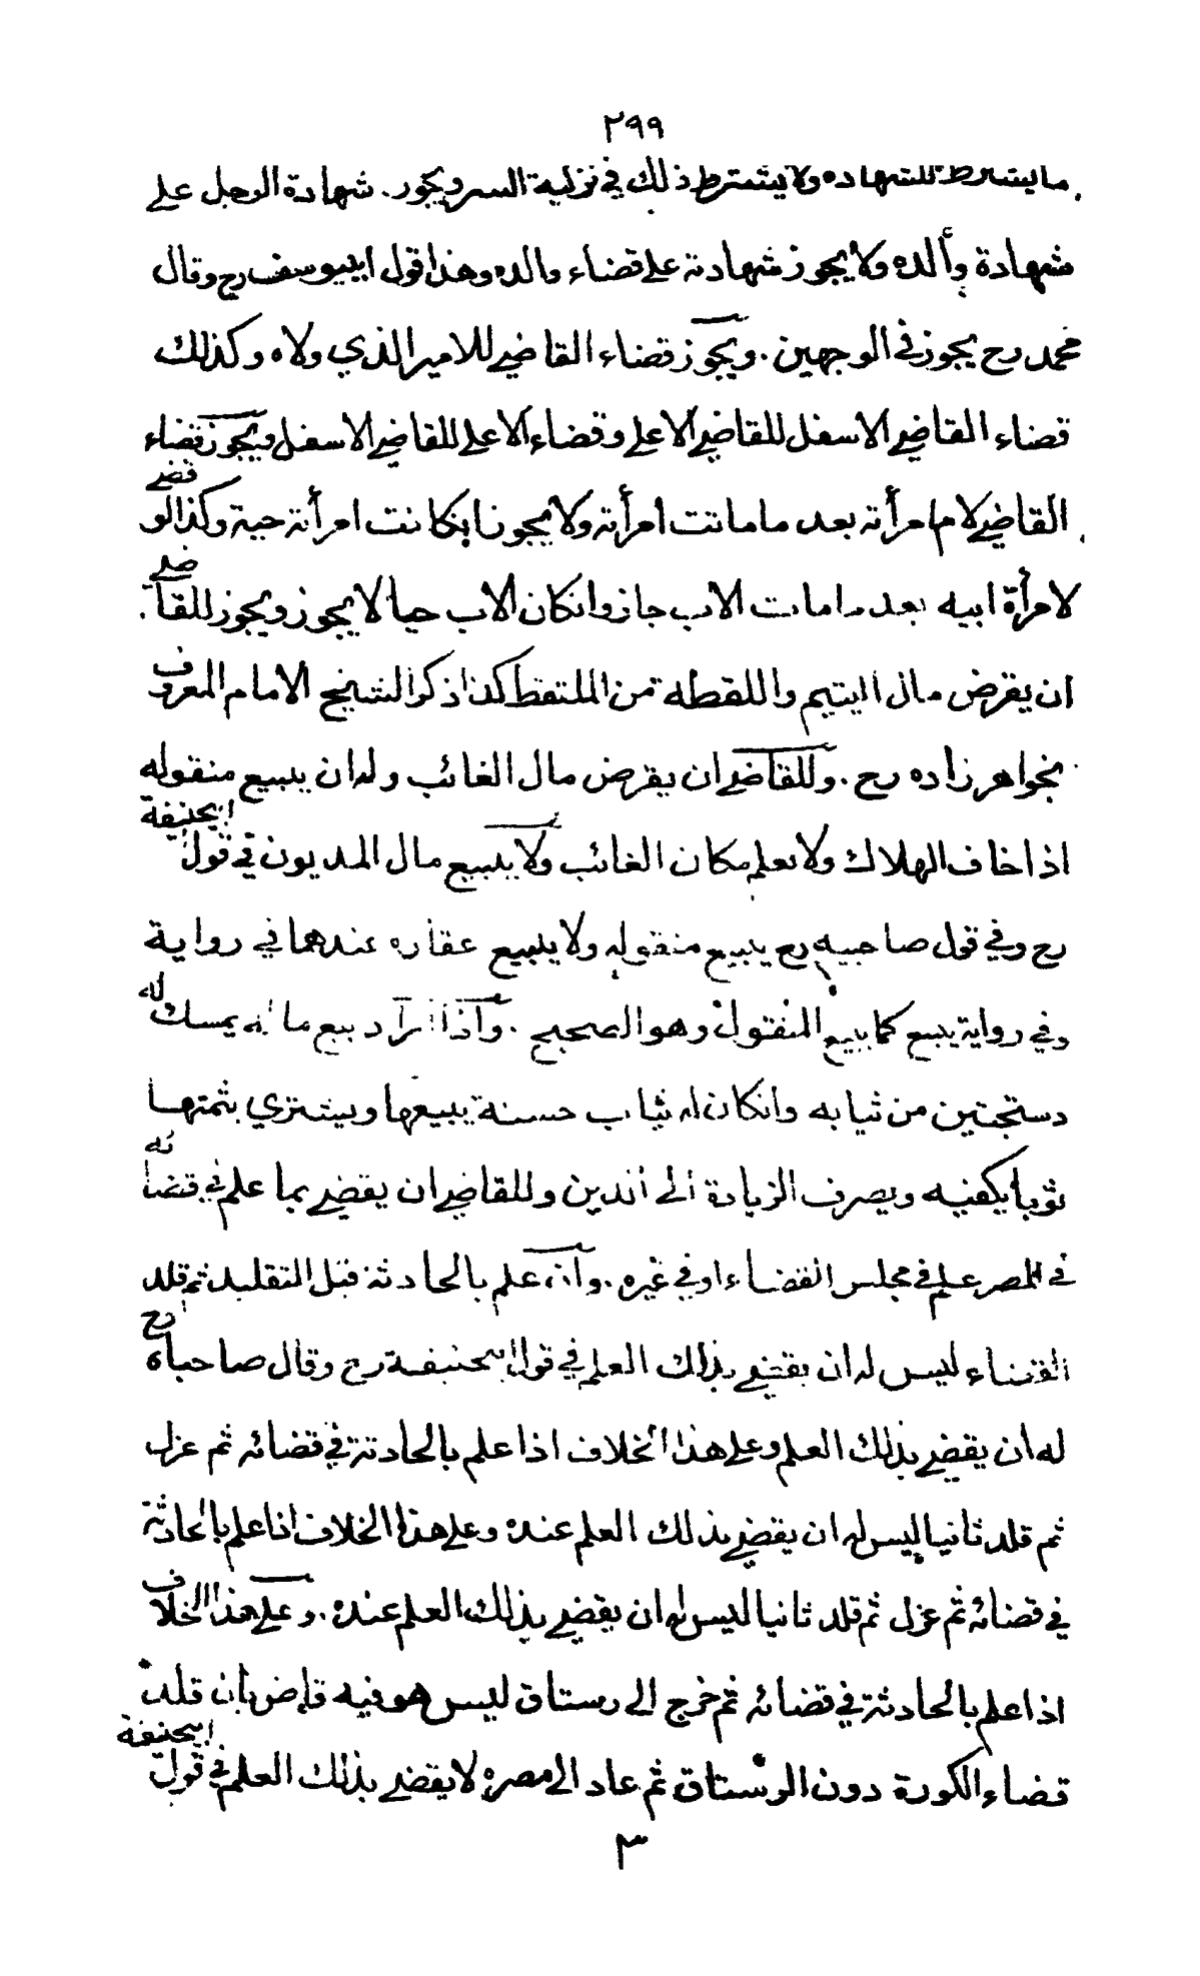 ٢٩٩
ما يشترط للشهاده ولا يشترط ذلك في تزكية السر ويجوز . شهادة الرجل على
شهادة والده ولا يجوز شهادته على قضاء والده وهذا قول ابييوسف رح وقال
محمد رح يجوز في الوجهين . ويجوز قضاء القاضي للامير الذي ولاه وكذلك
قضاء القاضي الاسفل للقاضي الاعلى وقضاء الاعلى للقاضي الاسفل ويجوز قضاء
القاضي لام امرأته بعد ما ماتت امرأته ولا يجوز انكانت امرأته حية وكذا لو قضى
لامرأة ابيه بعد ما مات الاب جاز وانكان الاب حيا لا يجوز ويجوز للقاضي
ان يقرض مال اليتيم واللقطه من الملتقط كذا ذكر الشيخ الامام المعروف
بخواهرزاده رح . وللقاضي ان يقرض مال الغائب وله ان يبيع منقوله
اذا خاف الهلاك ولا يعلم مكان الغائب ولا يبيع مال المديون في قول ابيحنيفة
رح وفي قول صاحبيه رح يبيع منقوله ولا يبيع عقاره عندهما في رواية
وفي رواية يبيع كما يبيع المنقول وهو الصحيح . واذا اراد بيع ماله يمسك له
دستجتين من ثيابه وانكان له ثياب حسنة يبيعها ويشتري بثمنها
ثوبا يكفيه ويصرف الزيادة الى الدين وللقاضي ان يقضي بما علم في قضائه
في المصر علم في مجلس القضاء او في غيره . وان علم بالحادثة قبل التقليد ثم قلد
القضاء ليس له ان يقضي بذلك العلم في قول ابيحنيفة رح وقال صاحباه رح
له ان يقضي بذلك العلم وعلى هذا الخلاف اذا علم بالحادثة في قضائه ثم عزل
ثم قلد ثانيا ليس له ان يقضي بذلك العلم عنده وعلى هذا الخلاف اذا علم بالحادثة
في قضائه ثم عزل ثم قلد ثانيا ليس له ان يقضي بذلك العلم عنده . وعلى هذا الخلاف
اذا علم بالحادثة في قضائه ثم خرج الى رستاق ليس هو فيه قاض بان قلد
قضاء الكورة دون الرستاق ثم عاد الى مصره لا يقضي بذلك العلم في قول ابيحنيفة
٣